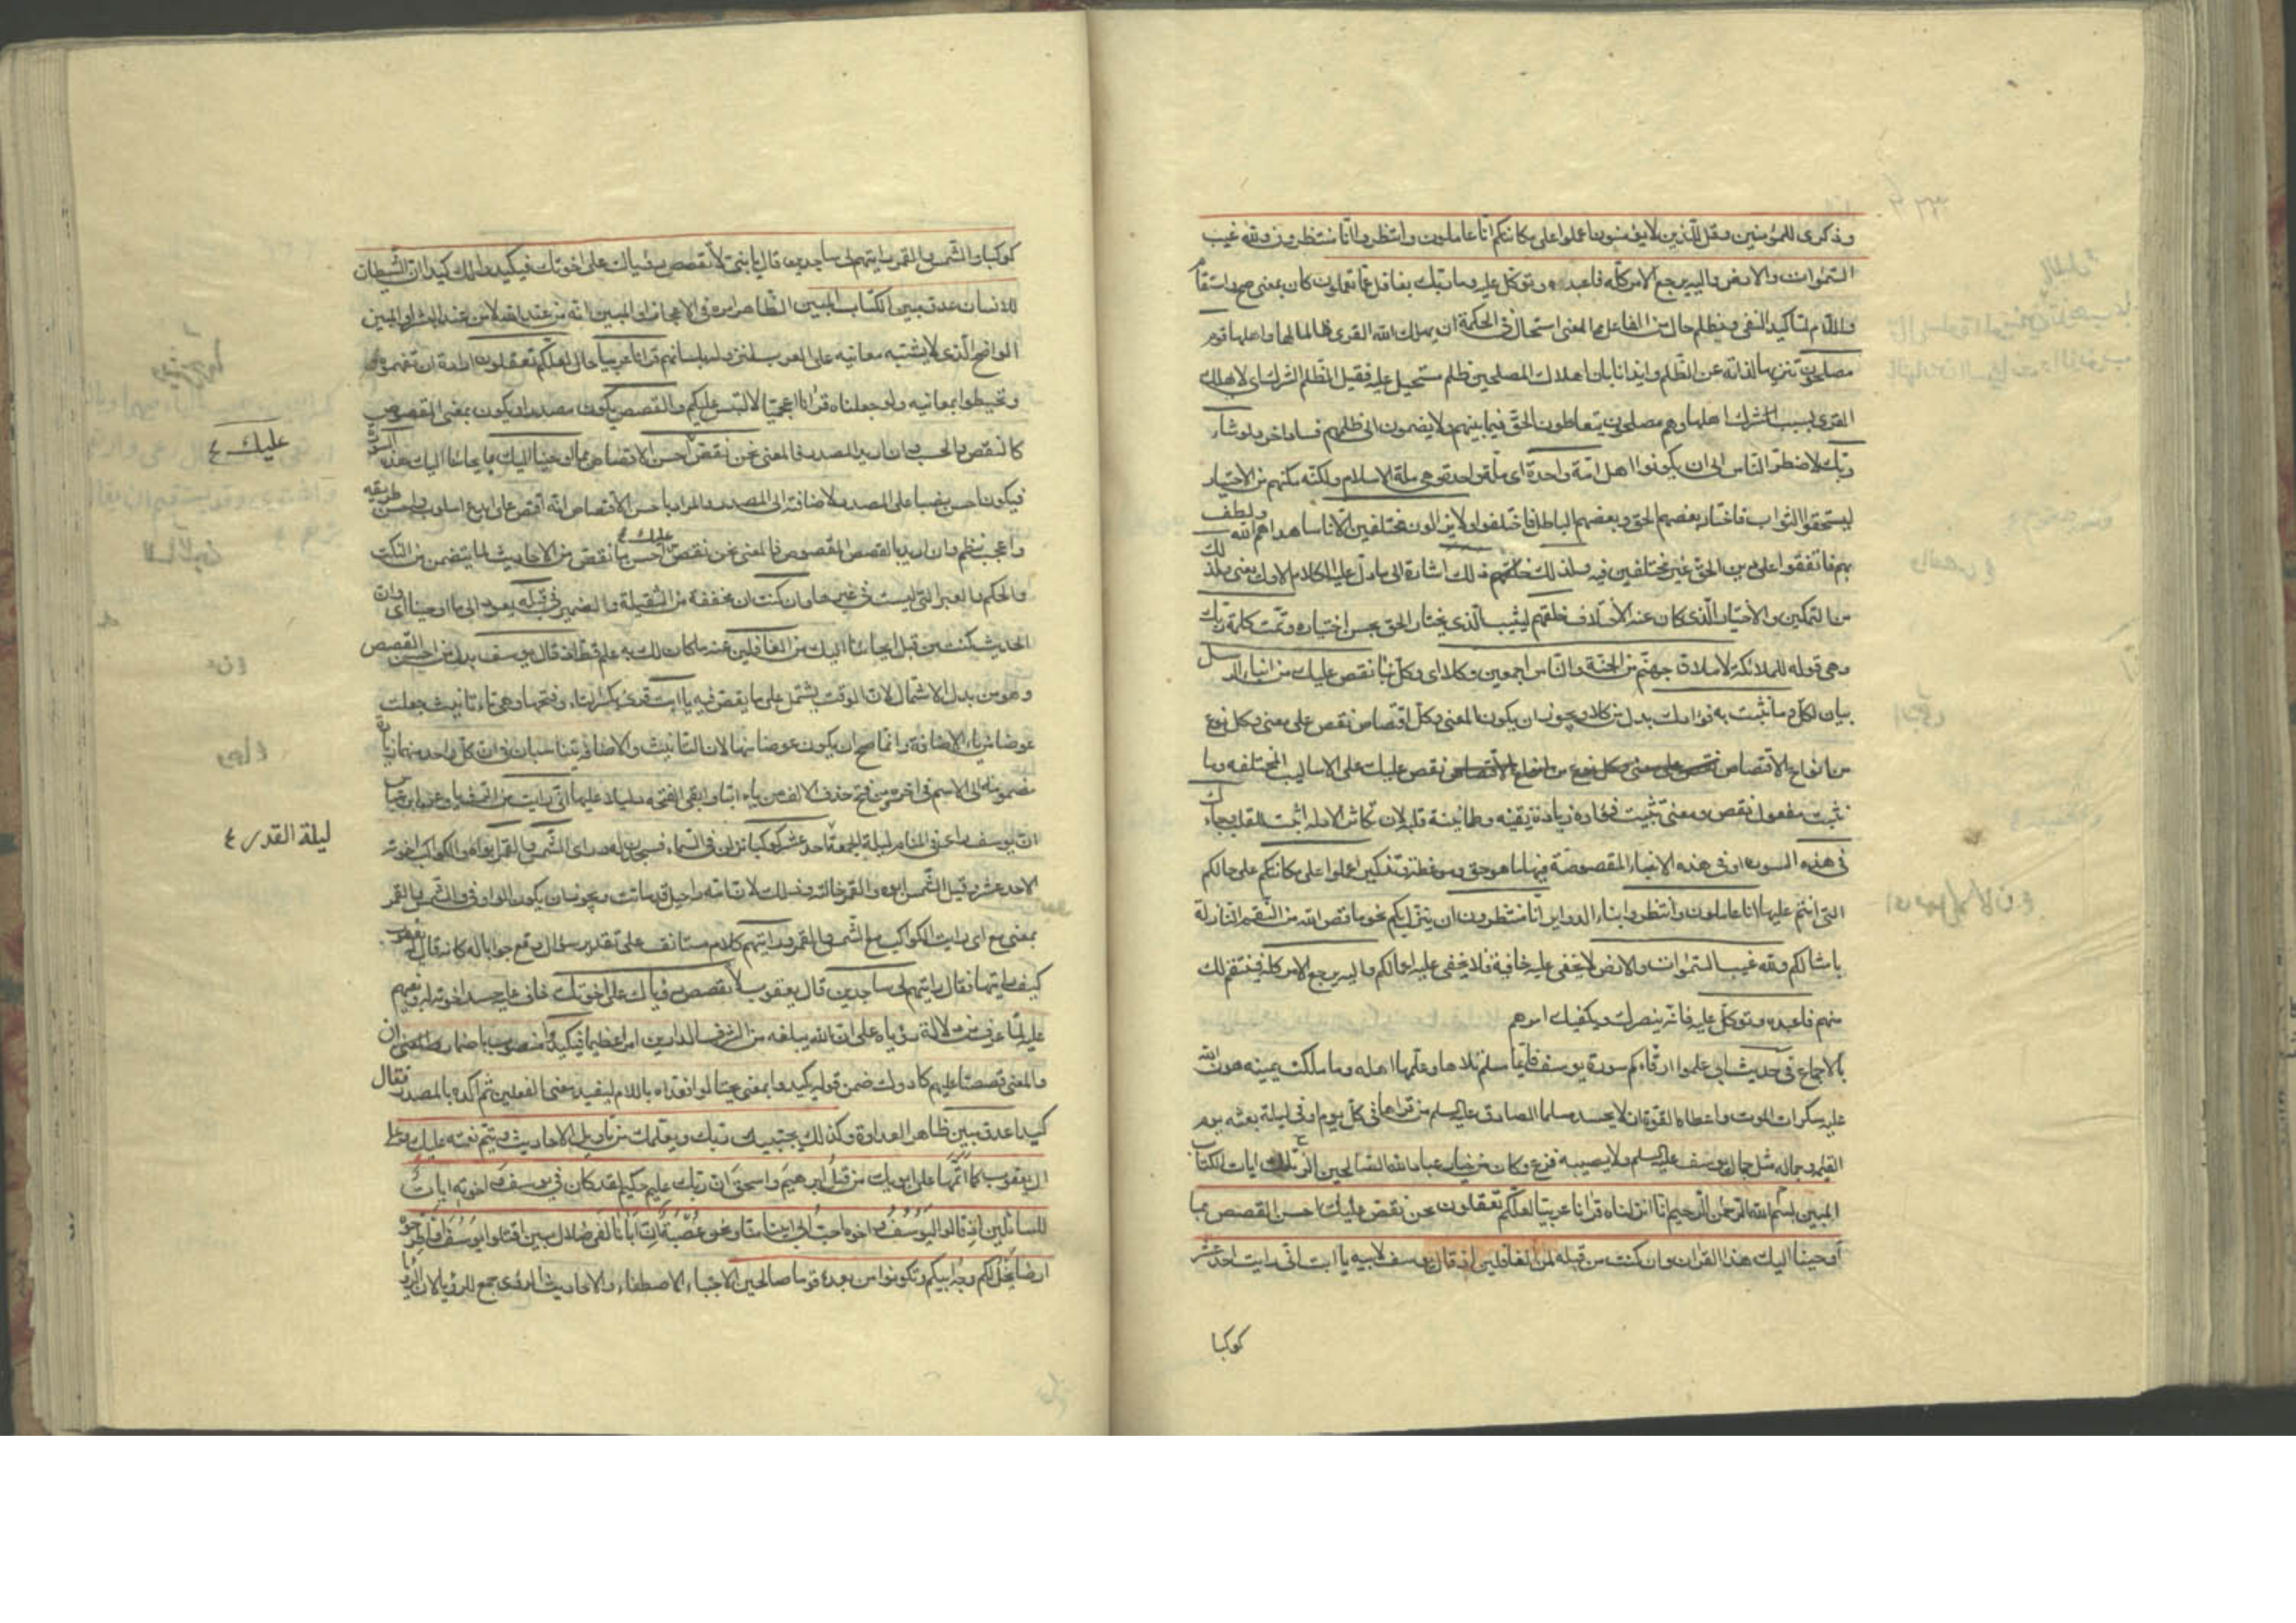 وذكرى للمؤمنين وقل للذين لا يؤمنون اعملوا على مكانتكم انا عاملون وانتظروا انا منتظرون ولله غيب
السموات والارض واليه يرجع الامر كله فاعبده وتوكل عليه وما ربك بغافل عما تعملون كان بمعنى صح واستقام
واللام لتأكيد النفي وبظلم حال من الفاعل والمعنى استحال في الحكمة ان يهلك الله القرى ظالما لها واهلها قوم
مصلحون تنزيها لذاته عن الظلم وايذانا بان اهلاك المصلحين ظلم مستحيل عليه وقيل الظلم الشرك اي لا يهلك
القرى بسبب شرك اهلها وهم مصلحون يتعاطون الحق فيما بينهم ولا يضمون الى ظلمهم فسادا اخر ولو شاء
ربك لاضطر الناس الى ان يكونوا اهل امة واحدة اى ملة واحدة وهي ملة الاسلام ولكنه مكنهم من الاختيار
ليستحقوا الثواب فاختار بعضهم الحق وبعضهم الباطل فاختلفوا ولا يزالون مختلفين الا ناسا هداهم الله ولطف
بهم فاتفقوا على دين الحق غير مختلفين فيه ولذلك خلقهم ذلك اشارة الى ما دل عليه الكلام الاول يعنى ولذلك
من التمكين والاختيار الذى كان عنه الاختلاف خلقهم ليثيب الذى يختار الحق بحسن اختياره وتمت كلمة ربك
وهي قوله للملائكة لاملأن جهنم من الجنة والناس اجمعين وكلا اى وكل نبأ نقص عليك من انباء الرسل
بيان لكل وما نثبت به فؤادك بدل من كلا ويجوز ان يكون المعنى وكل اقتصاص نقص على معنى وكل نوع
من انواع الاقتصاص نقص عليك على الاساليب المختلفه وما
نثبت مفعول نقص ومعنى تثبيت فؤاده زيادة يقينه وطمانينة قلبه لان تكاثر الادلة اثبت للقلب وجاءك
في هذه السورة او في هذه الانباء المقصوصة فيها ما هو حق وموعظة وتذكير اعملوا على مكانتكم على حالكم
التى انتم عليها انا عاملون وانتظروا بناء الدوائر انا منتظرون ان ينزل بكم نحو ما قص الله من النقم النازلة
باشالكم ولله غيب السموات والارض لا يخفى عليه خافية فلا يخفى عليه احوالكم واليه يرجع الامر كله فينتقم لك
منهم فاعبده وتوكل عليه فانه ينصرك ويكفيك امرهم
بالاجماع في حديث ابي علموا ارقاءكم سورة يوسف فايما مسلم تلاها وعلمها اهله وما ملكت يمينه هون الله
عليه سكرات الموت واعطاه القوة ان لا يحسد مسلما الصادق عليه السلم من قراها في كل يوم او في ليلة بعثه يوم
القيمة وجماله مثل جمال يوسف عليه السلم ولا يصيبه فزع وكان من خيار عباد الله الصالحين الر تلك ايات الكتاب
المبين بسم الله الرحمن الرحيم انا انزلناه قرانا عربيا لعلكم تعقلون نحن نقص عليك احسن القصص بما
أوحينا اليك هذا القران وان كنت من قبله لمن الغافلين اذ قال يوسف لابيه يا ابت انى رايت احد عشر
كوكبا
كوكبا والشمس والقمر رايتهم لى ساجدين قال يا بنى لا تقصص رؤياك على اخوتك فيكيدوا لك كيدا ان الشيطان
للانسان عدو مبين الكتاب المبين الظاهر امره في الاعجاز او المبين انه من عند الله لا من عند البشر او المبين
الواضح الذي لا يشتبه معانيه على العرب لنزوله بلسانهم قرانا عربيا حال لعلكم تعقلون ارادة ان تفهموه
وتحيطوا بمعانيه ولو جعلناه قرانا اعجميا لالتبس عليكم والقصص يكون مصدرا ويكون بمعنى المقصوص
كالنقص والحسب فان اريد المصدر فالمعنى نحن نقص احسن الاقتصاص بما اوحينا اليك بايحائنا اليك هذه السورة
عليك ع
فيكون احسن نصبا على المصدر لاضافته الى المصدر والمراد باحسن الاقتصاص انه اقتص على ابدع اسلوب واحسن طريقه
واعجب نظم وان اريد بالقصص المقصوص فالمعنى نحن نقص عليك احسن ما نقص من الاحاديث لما يتضمن من النكت
والحكم والعبر التى ليست فى غيرها وان كنت ان مخففة من الثقيلة والضمير فى قبله يعود الى ما اوحينا اى وان
الحديث كنت من قبل ايحائنا اليك من الغافلين عنه ما كان لك به علم قط اذ قال يوسف بدل من احسن القصص
وهو من بدل الاشتمال لان الوقت يشتمل على ما يقص فيه يا ابت قرئ بكسر التاء وفتحها وهى تاء تانيث جعلت
عوضا من ياء الاضافة وانما صح ان يكون عوضا منها لان التانيث والاضافة يتناسبان فى ان كل واحد منهما زيادة
مضمومة الى الاسم فى اخره ومن فتح حذف الالف من يا ابتا وابقى الفتحه دليلا عليها انى رايت من الرؤيا وعن ابن عباس
ان يوسف راى فى المنام ليلة الجمعة احد عشر كوكبا نزلن من السماء فسجدن له وراى الشمس والقمر ابواه والكواكب اخوته
ليلة القدر ع
الاحد عشر وقيل الشمس ابوه والقمر خالته وذلك لان امه راحيل قد ماتت ويجوز ان يكون الواو فى والشمس والقمر
بمعنى مع اى رايت الكواكب مع الشمس والقمر ورايتهم كلام مستانف على تقدير سؤال وقع جوابا له كانه قال له يعقوب
كيف رايتها فقال رايتهم لى ساجدين قال يعقوب لا تقصص رؤياك على اخوتك خاف عليه حسد اخوته له وبغيهم
عليه لما عرف من دلالة رؤياه على ان الله يبلغه من الشرف الدارين امرا عظيما فيكيدوا منصوب باضمار ان
والمعنى ان قصصتها عليهم كادوك ضمن قوله يكيدوا بمعنى يحتالوا فعداه باللام ليفيد معنى الفعلين ثم اكده بالمصدر فقال
كيدا عدو مبين ظاهر العداوة وكذلك يجتبيك ربك ويعلمك من تاويل الاحاديث ويتم نعمته عليك وعلى
ال يعقوب كما اتمها على ابويك من قبل ابرهيم واسحق ان ربك عليم حكيم لقد كان فى يوسف واخوته ايات
للسائلين اذ قالوا ليوسف واخوه احب الى ابينا منا ونحن عصبة ان ابانا لفى ضلال مبين اقتلوا يوسف او اطرحوه
ارضا يخل لكم وجه ابيكم وتكونوا من بعده قوما صالحين الاجتباء الاصطفاء والاحاديث الرؤى جمع للرؤيا لان الرؤيا